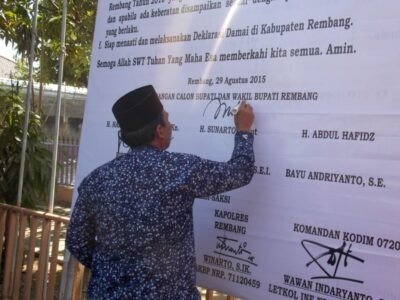 Rembang Tahun 2015
dan apabila ada keberatan disampaikan
yang berlaku.
Siap menaati dan melaksanakan Deklarasi Damai di Kabupaten Rembang.
Semoga Allah SWT Tuhan Yang Maha Esa memberkahi kita semua. Amin.
Rembang, 29 Agustus 2015
CALON BUPATI DAN WAKIL BUPATI REMBANG
H. SUNARTO H. ABDUL HAFIDZ
BAYU ANDRIYANTO, S.E.
SAKSI
KAPOLRES
REMBANG
KOMANDAN KODIM 0720
WINARTO, S.IK.
AKBP NRP. 71120459
WAWAN INDARYANTO
LETKOL INF